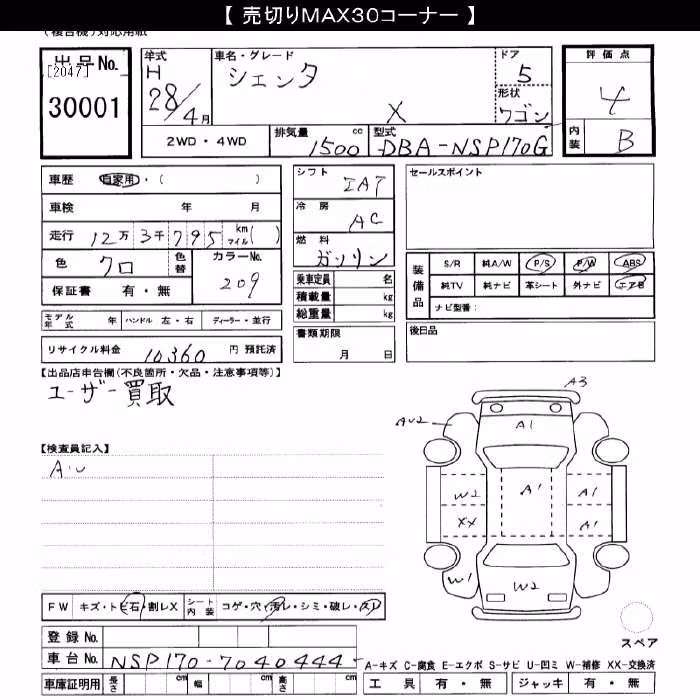 【 売切りMAX30コーナー 】
(複合機)対応用紙
出品No. [2047] 30001
年式 H 28/4月
車名・グレード シエンタ X
ドア 5
形状 ワゴン
評価点 4
内装 B
2WD・4WD
排気量 1500 cc
型式 DBA-NSP170G
車歴 自家用・( )
車検 年 月
走行 12万3千795 km マイル( )
色 クロ 色替 カラーNo. 209
保証書 有・無
モデル年式 年 ハンドル 左・右 ディーラー・並行
リサイクル料金 10360 円 預託済
シフト IAT
冷房 AC
燃料 ガソリン
乗車定員 名
積載量 kg
総重量 kg
書類期限 月 日
セールスポイント
装備品 S/R 純A/W P/S P/W ABS
純TV 純ナビ 革シート 外ナビ エアB
ナビ型番:
後日品
【出品店申告欄(不良箇所・欠品・注意事項等)】
ユーザー買取
【検査員記入】
AU
A3
AU2
A1
W2 A1 A1
XX A1
W1 W2
スペア
FW キズ・トビ石・割レX シート内装 コゲ・穴・汚レ・シミ・破レ・スレ
登録No.
車台No. NSP170-7040444
車庫証明用 長さ cm 幅 cm 高さ cm
A-キズ C-腐食 E-エクボ S-サビ U-凹ミ W-補修 XX-交換済
工具 有・無 ジャッキ 有・無